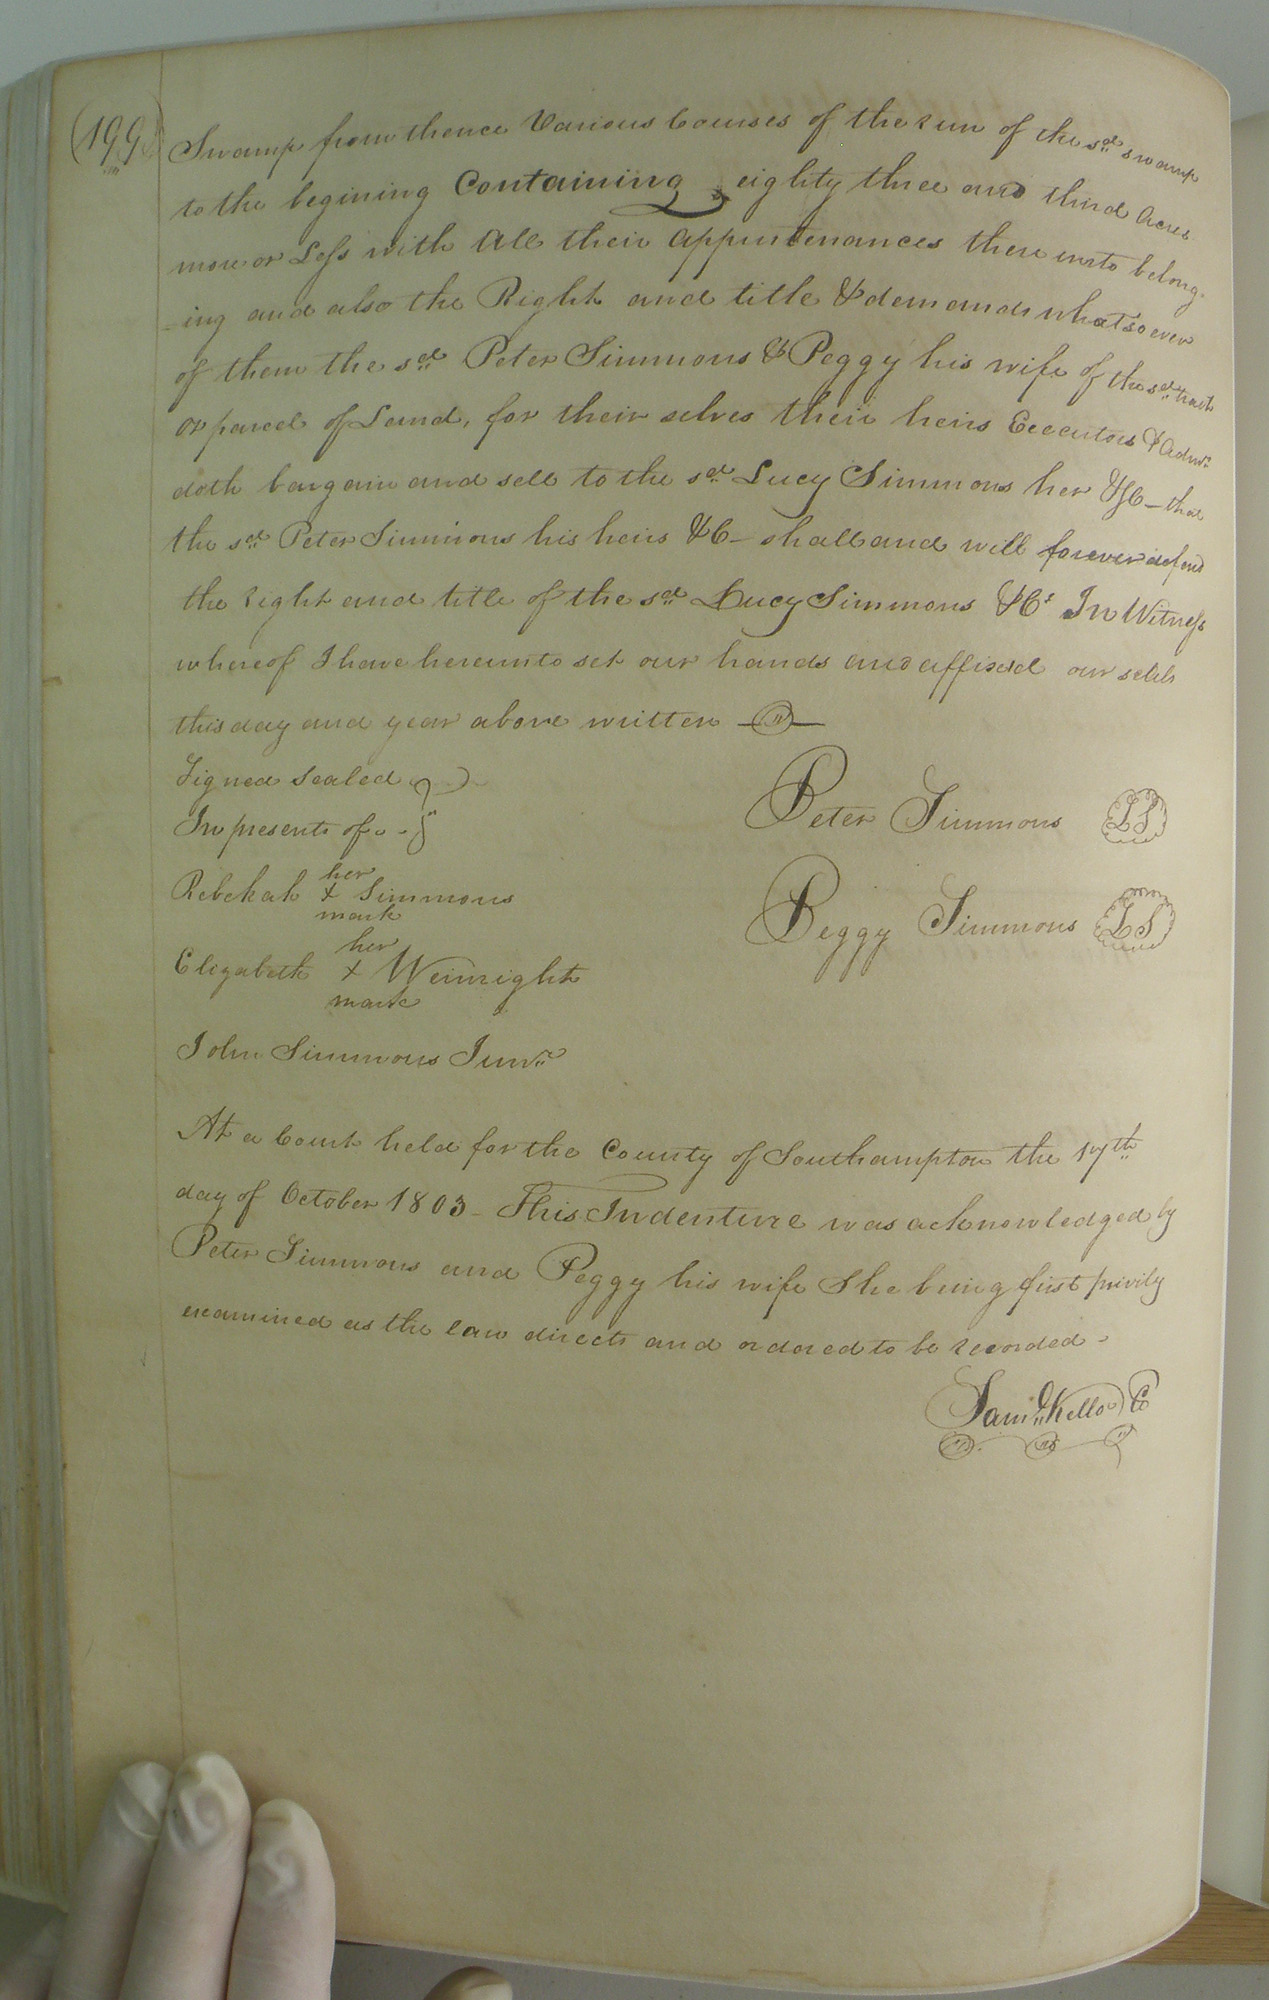 (199)
Swamp from thence Various Courses of the run of the sd swamp
to the begining Containing eighty three and third Acres
more or Less with All their appurtenances there unto belong-
-ing and also the Right and title & demands whatsoever
of them the sd Peter Simmons & Peggy his wife of the sd tract
or parcel of Land, for their selves their heirs Executors & Admrs
doth bargain and sell to the sd Lucy Simmons her &C - that
the sd Peter Simmons his heirs &C - shall and will forever defend
the right and title of the sd Lucy Simmons &Cs In Witness
whereof I have hereunto set our hands and affixed our seals
this day and year above written
Signed Sealed
In presents of
Peter Simmons LS
Rebekah her x mark Simmons
Peggy Simmons LS
Elizabeth her x mark Weinright
John Simmons Junr
At a Court held for the County of Southampton the 17th
day of October 1803 - This Indenture was acknowledged by
Peter Simmons and Peggy his wife She being first privily
examined as the law directs and ordered to be recorded -
Saml Kello C